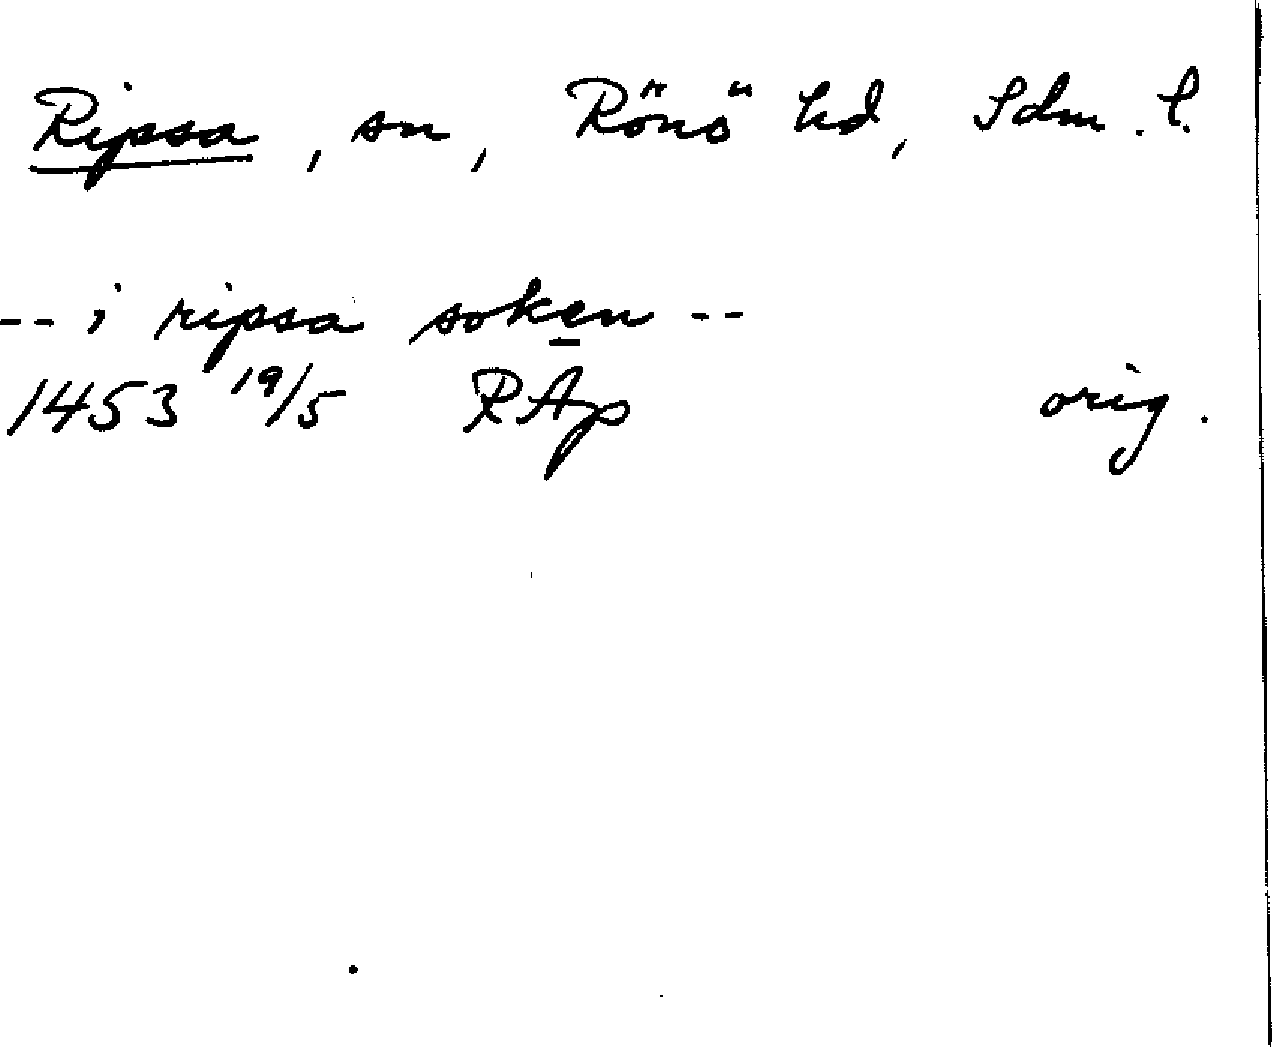 Ripsa, sn, Rönö hd, Sdm. l.
-- i ripsa soken --
1453 19/5 RAp orig.